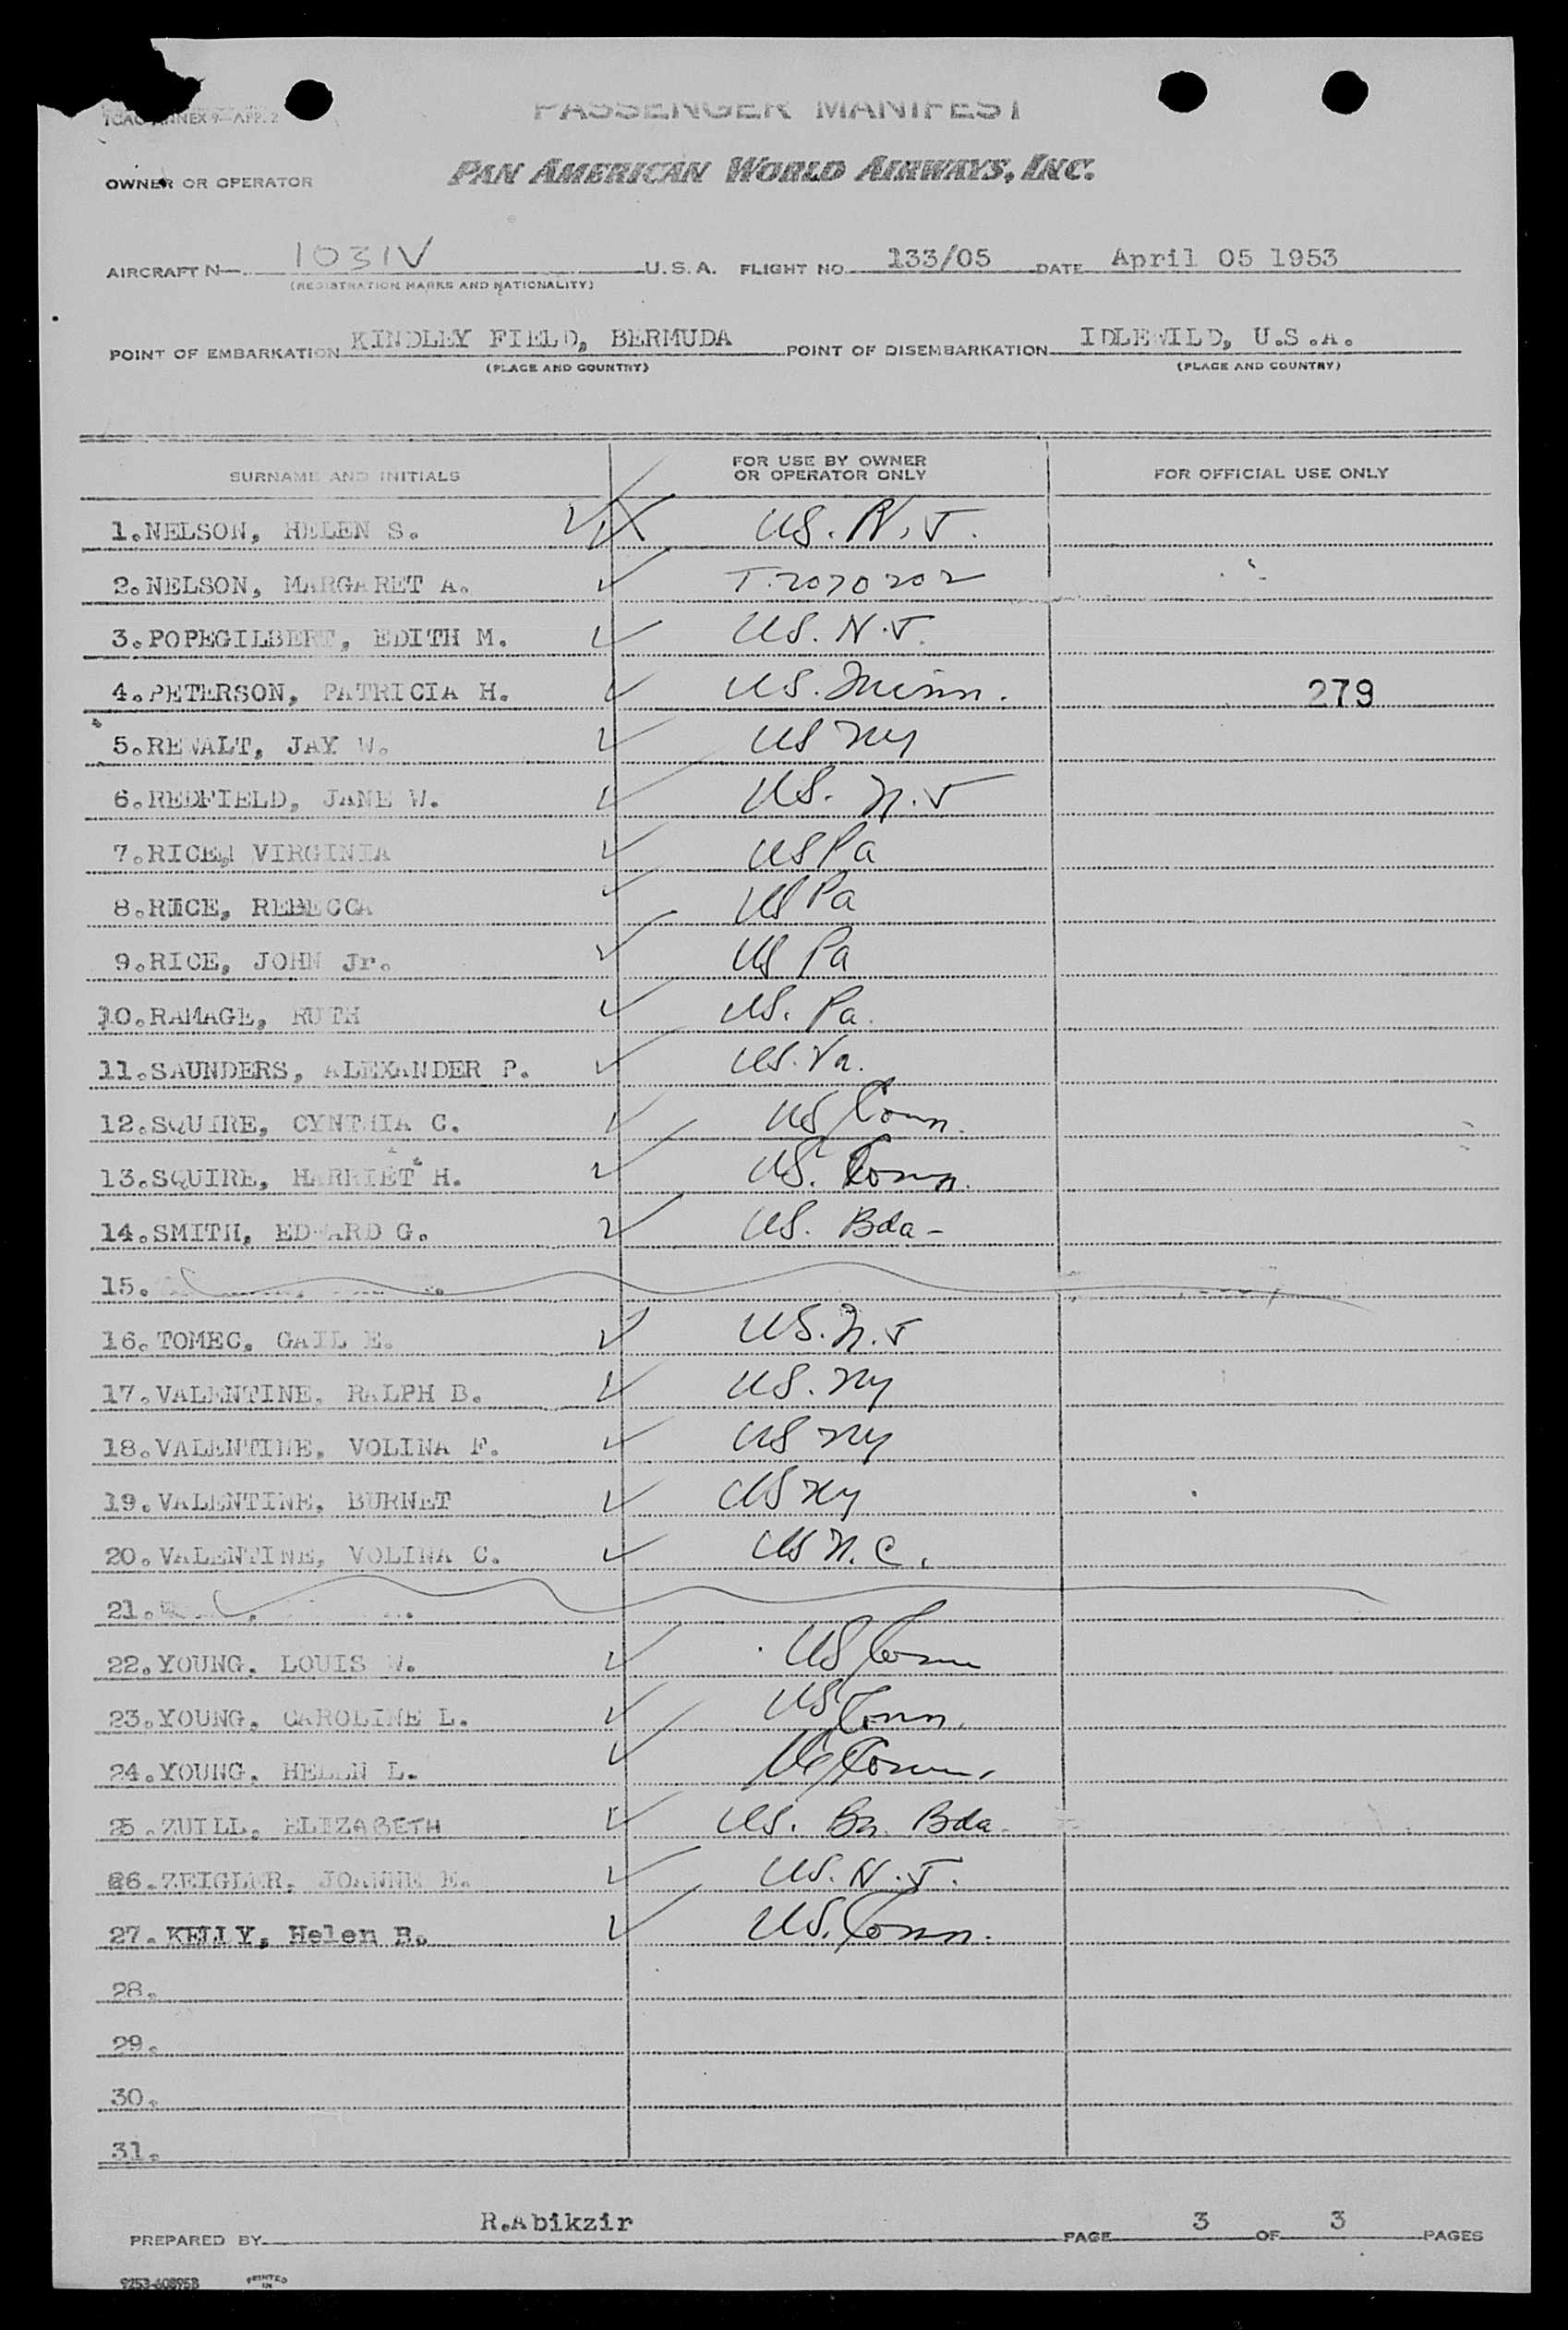 ICAO ANNEX 9—APP. 2
PASSENGER MANIFEST
OWNER OR OPERATOR PAN AMERICAN WORLD AIRWAYS, INC.
AIRCRAFT N 1031V U.S.A. FLIGHT NO 133/05 DATE April 05 1953
(REGISTRATION MARKS AND NATIONALITY)
POINT OF EMBARKATION KINDLEY FIELD, BERMUDA POINT OF DISEMBARKATION IDLEWILD, U.S.A.
(PLACE AND COUNTRY) (PLACE AND COUNTRY)
SURNAME AND INITIALS FOR USE BY OWNER OR OPERATOR ONLY FOR OFFICIAL USE ONLY
1.NELSON, HELEN S. US. N.J.
2.NELSON, MARGARET A. T.2070202
3.POPEGILBERT, EDITH M. US. N.J.
4.PETERSON, PATRICIA H. US. Minn. 279
5.REWALT, JAY W. US NY
6.REDFIELD, JANE W. US. N.J
7.RICE, VIRGINIA US Pa
8.RICE, REBECCA US Pa
9.RICE, JOHN Jr. US Pa
10.RAMAGE, RUTH US. Pa.
11.SAUNDERS, ALEXANDER P. US. Va.
12.SQUIRE, CYNTHIA C. US Conn.
13.SQUIRE, HARRIET H. US. Conn.
14.SMITH, EDWARD G. US. Bda-
15.
16.TOMEC, GAIL E. US. N.J
17.VALENTINE, RALPH B. US. NY
18.VALENTINE, VOLINA F. US NY
19.VALENTINE, BURNET US NY
20.VALENTINE, VOLINA C. US N.C.
21.
22.YOUNG, LOUIS W. US Conn
23.YOUNG, CAROLINE L. US Conn.
24.YOUNG, HELEN L. US Conn.
25.ZUILL, ELIZABETH US. Bn. Bda.
26.ZEIGLER, JOANNE E. US. N.J.
27.KELLY, Helen B. US. Conn.
28.
29.
30.
31.
PREPARED BY R.Abikzir PAGE 3 OF 3 PAGES
9253-608958 PRINTED IN